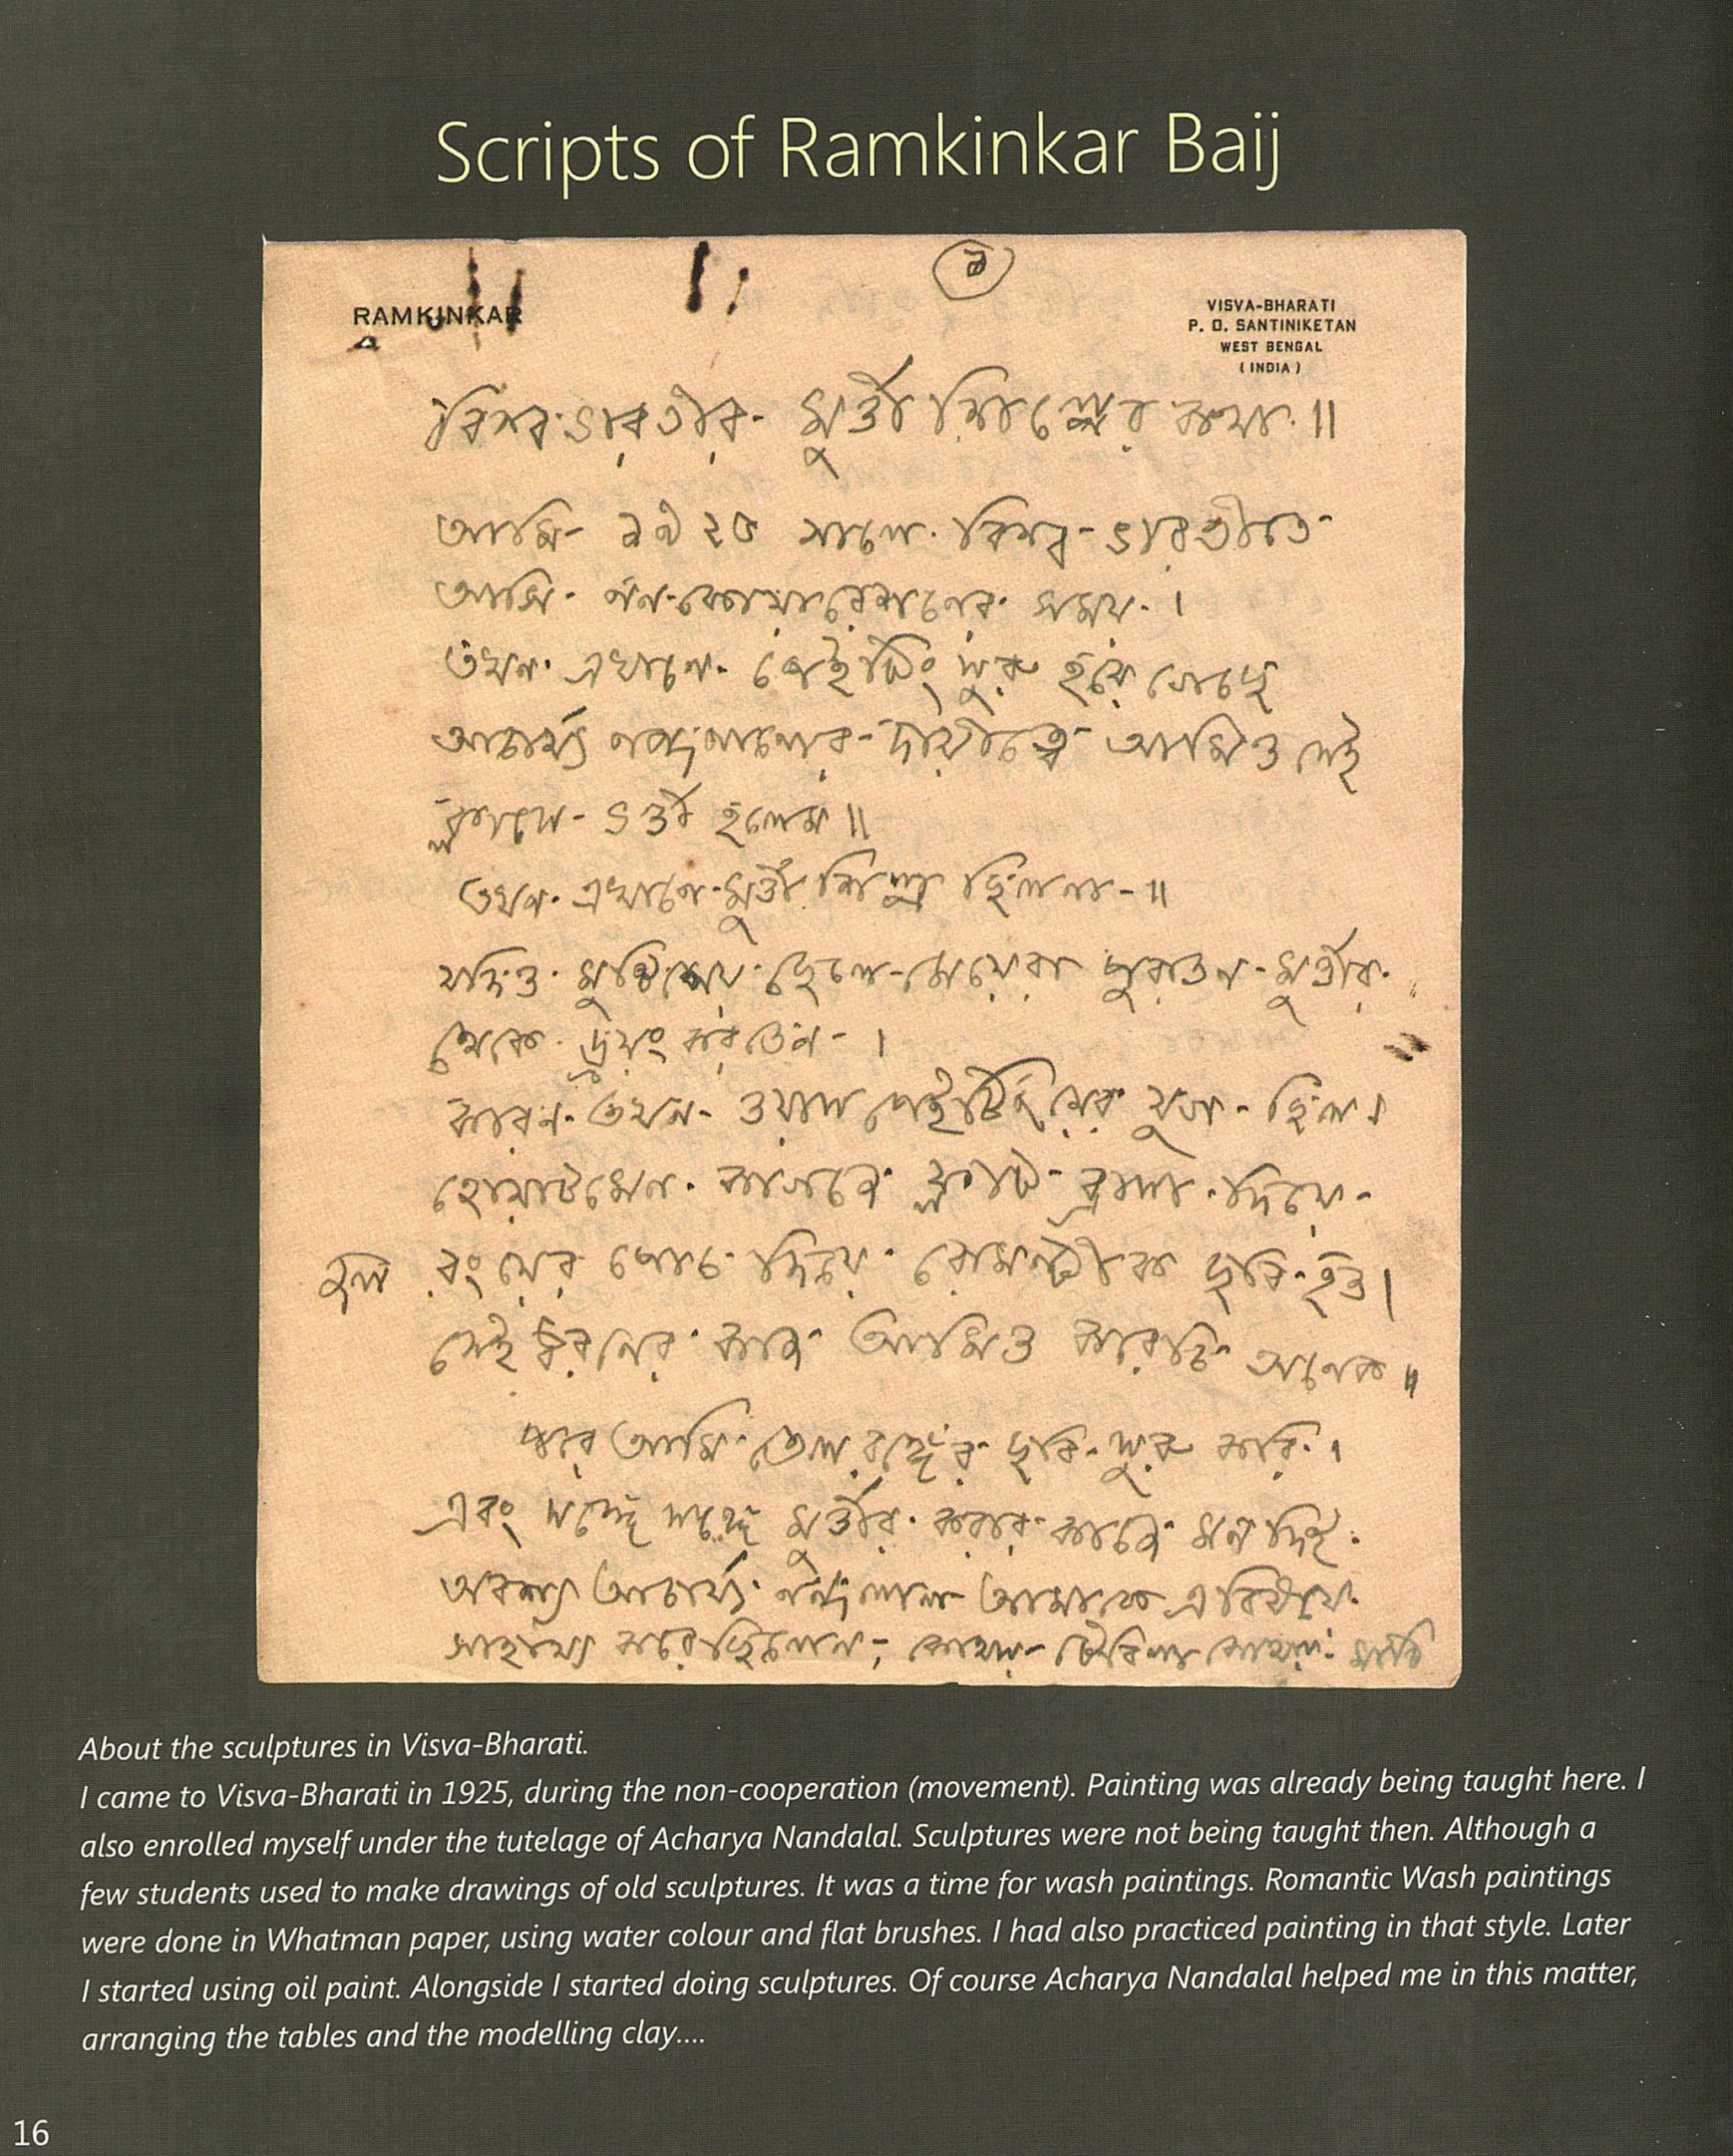 Scripts of Ramkinkar Baij
১
RAMKINKAR
VISVA-BHARATI
P. O. SANTINIKETAN
WEST BENGAL
( INDIA )
বিশ্ব-ভারতীর- মুর্ত্তী শিল্পের কথা ॥
আমি- ১৯২৫ সালে বিশ্ব-ভারতীতে
আসি নন-কোয়ারেশানের সময় ।
তখন এখানে পেইন্টিং সুরু হয়ে গেছে
আচার্য্য নন্দলালের- আমিও সেই
ক্লাসে- ভর্ত্তী হলেম ॥
তখন এখানে মুর্ত্তী শিল্প ছিলনা- ॥
যদিও মুষ্টিমেয় ছেলে-মেয়েরা পুরাতন- মুর্ত্তীর
থেকে ড্রয়িং করতেন- ।
কারণ তখন- ওয়াস পেইন্টিংয়ের যুগ- ছিল ।
হোয়াটমেন কাগজে ফ্ল্যাট- ব্রাস দিয়ে-
জল রংয়ের পোচ দিয়ে রোমান্টীক ছবি হত ।
সেই ধরণের কাজ আমিও করেচি অনেক ॥
পরে আমি তেল রঙ্গের ছবি- সুরু করি ।
এবং সঙ্গে সঙ্গে মুর্ত্তীর করার কাজে মন দিই
অবশ্য আচার্য্য নন্দলাল আমাকে এবিষয়ে
সাহায্য করেছিলেন ; কোথায়- টেবিল কোথায় মাটি
About the sculptures in Visva-Bharati.
I came to Visva-Bharati in 1925, during the non-cooperation (movement). Painting was already being taught here. I
also enrolled myself under the tutelage of Acharya Nandalal. Sculptures were not being taught then. Although a
few students used to make drawings of old sculptures. It was a time for wash paintings. Romantic Wash paintings
were done in Whatman paper, using water colour and flat brushes. I had also practiced painting in that style. Later
I started using oil paint. Alongside I started doing sculptures. Of course Acharya Nandalal helped me in this matter,
arranging the tables and the modelling clay....
16